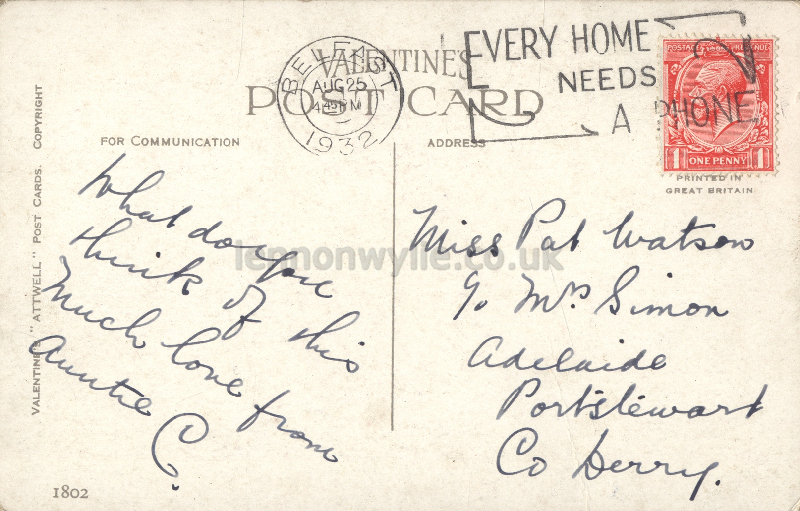 VALENTINE'S
POST CARD
BELFAST
AUG 25
4 45 PM
1932
EVERY HOME
NEEDS
A PHONE
POSTAGE REVENUE
1 ONE PENNY 1
PRINTED IN
GREAT BRITAIN
FOR COMMUNICATION
ADDRESS
VALENTINE'S "ATTWELL" POST CARDS. COPYRIGHT
What do you
think of this
Much love from
Auntie C.
Miss Pat Watson
c/o Mrs Simon
Adelaide
Portstewart
Co Derry.
lennonwylie.co.uk
1802